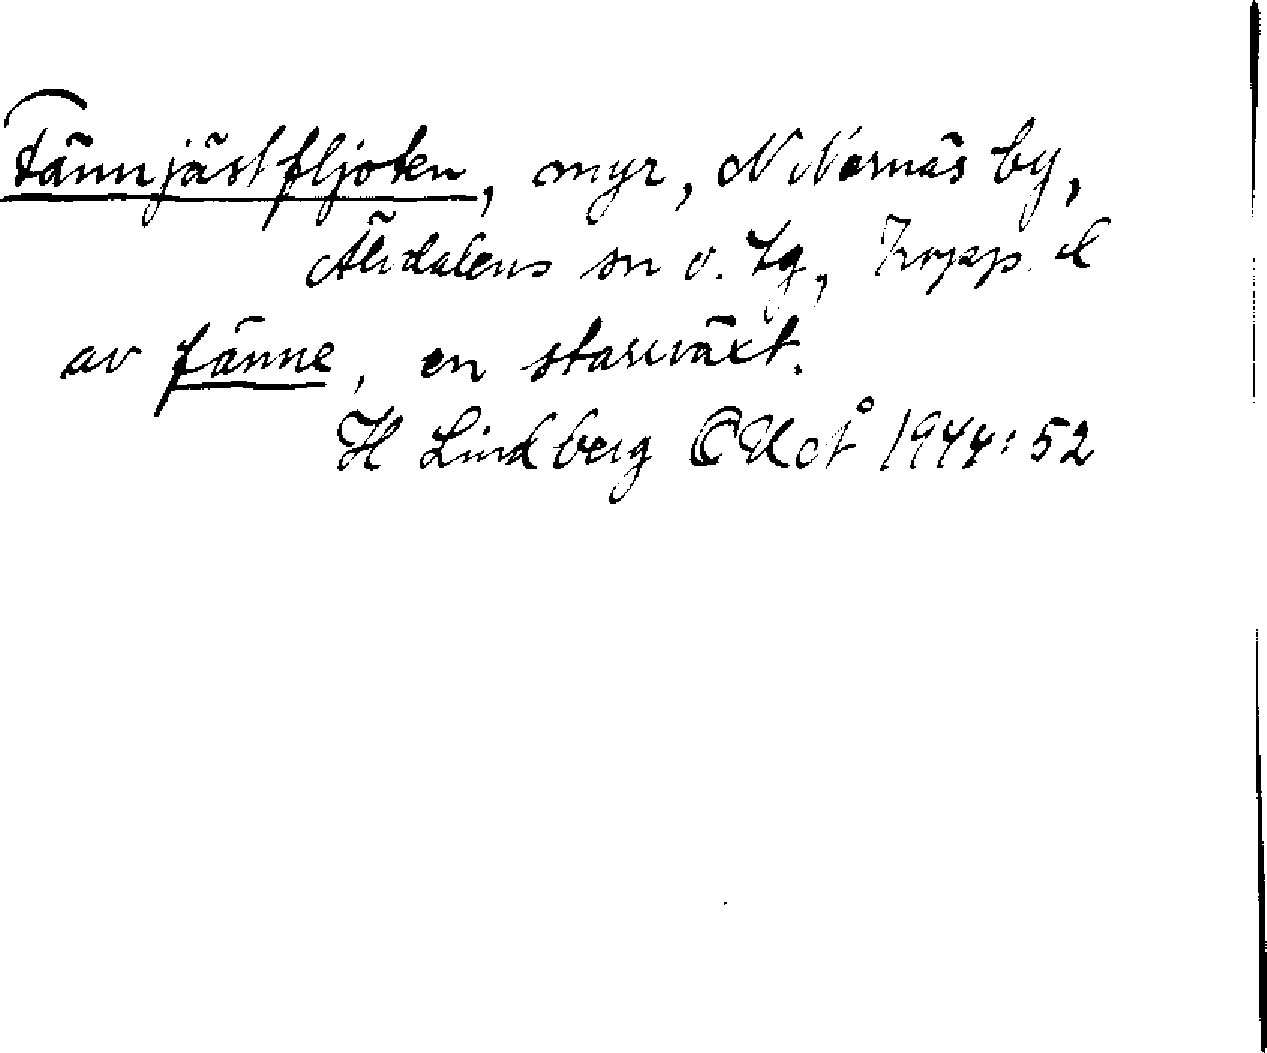 Tännjästfljoten, myr, N Nornäs by,
Älvdalens sn o. tg, Kopp. l
av fänne, en starrväxt.
H Lindberg OUÅ 1944: 52